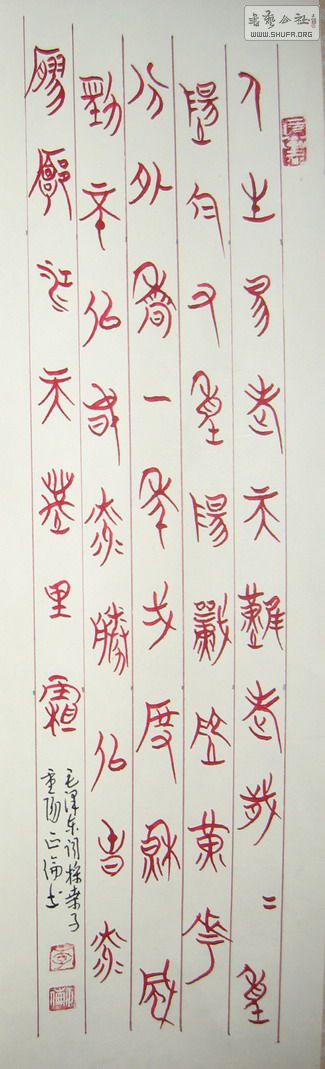 书艺公社
WWW.SHUFA.ORG
人生易老天難老歲二重
陽今又重陽戰地黃花
分外香一年一度秋風
勁不似春光勝似春光
寥廓江天萬里霜
毛泽东词採桑子
重阳正倫书